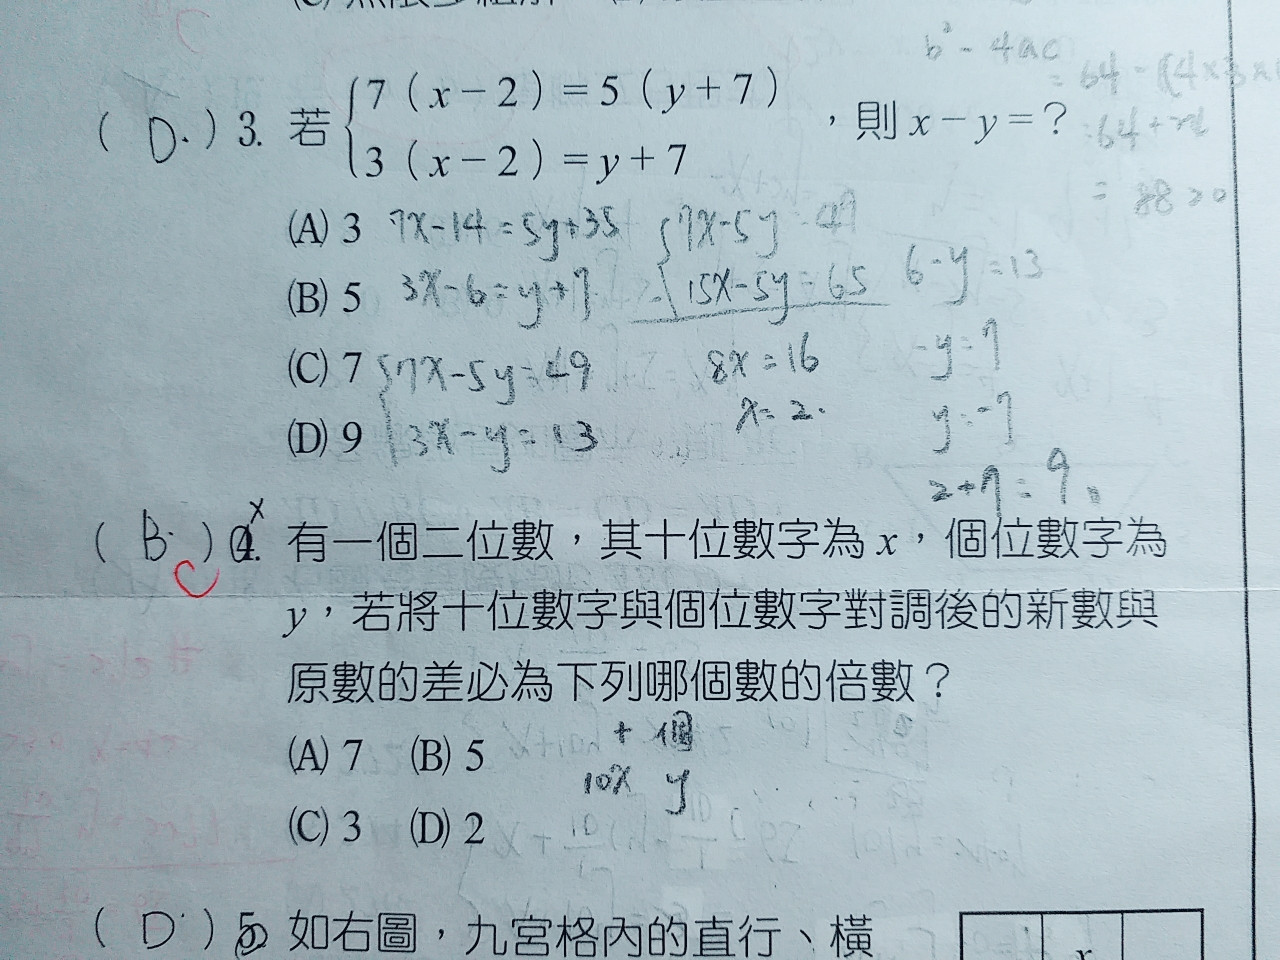 b² - 4ac
= 64 -
= 64 +
= 88 > 0
( D. ) 3. 若 { 7 ( x − 2 ) = 5 ( y + 7 )
3 ( x − 2 ) = y + 7 ，則 x − y = ？
(A) 3 7x-14 = 5y+35 { 7x-5y = 49
(B) 5 3x-6 = y+7 - 15x-5y = 65 6-y = 13
(C) 7 { 7x-5y = 49 8x = 16 -y = 7
(D) 9 3x-y = 13 x = 2. y = -7
2+7 = 9
( B. ) 4. 有一個二位數，其十位數字為 x，個位數字為
y，若將十位數字與個位數字對調後的新數與
原數的差必為下列哪個數的倍數？
十 個
(A) 7 (B) 5 10x y
(C) 3 (D) 2
( D ) 5. 如右圖，九宮格內的直行、橫
x